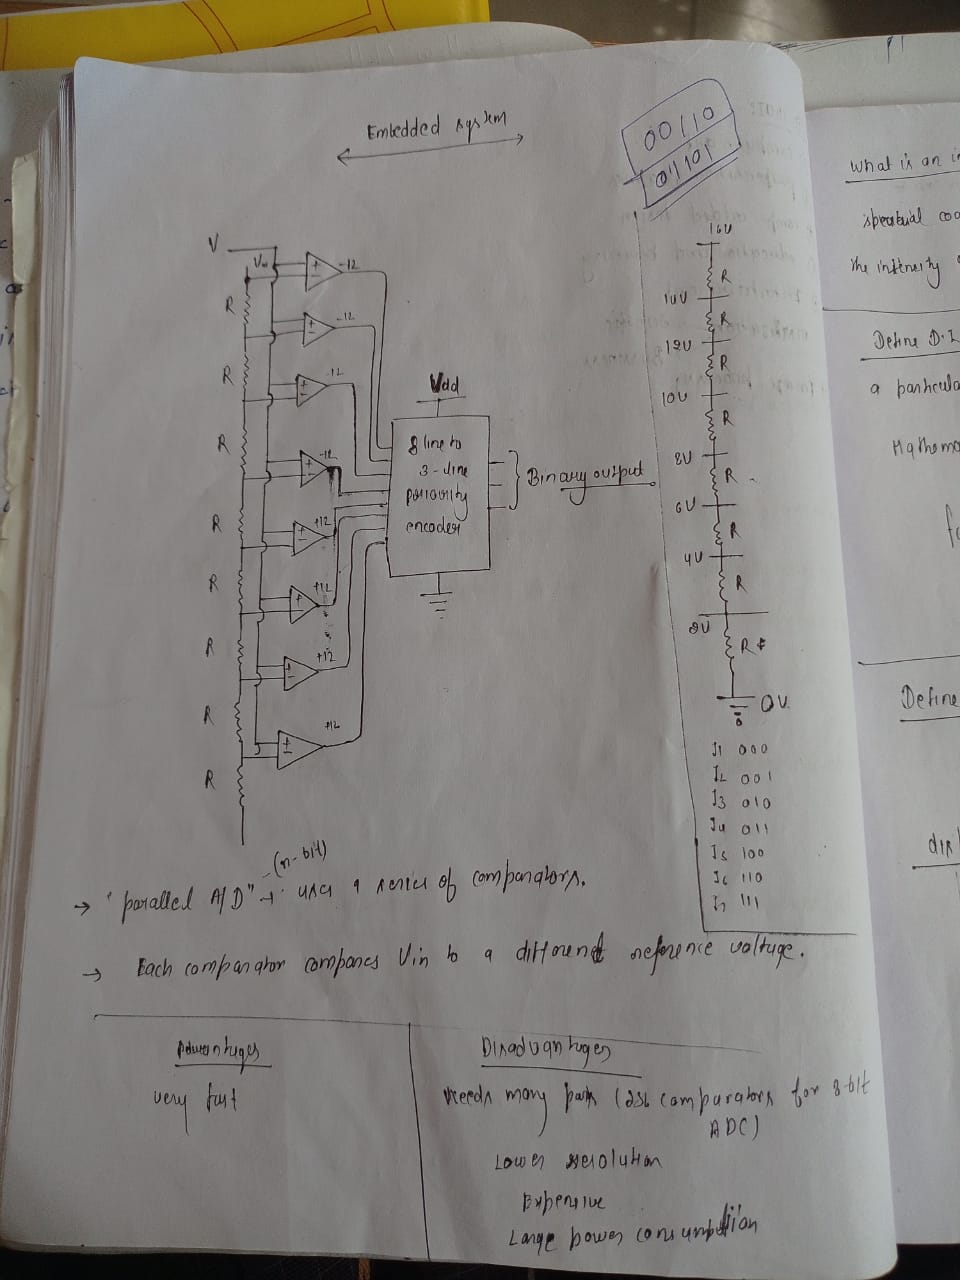 Embedded system
00110
01101
V
Vin
R
R
R
R
R
R
R
R
-12
-12
-12
-12
+12
+12
+12
+12
Vdd
8 line to
3-line
priority
encoder
Binary output
16V
R
14V
R
12V
R
10V
R
8V
R
6V
R
4V
R
2V
R
0V
I1 000
I2 001
I3 010
I4 011
I5 100
I6 110
I7 111
(n-bit)
→ "parallel A/D" → uses a series of comparators.
→ Each comparator compares Vin to a different reference voltage.
Advantages
very fast
Disadvantages
Needs many parts (256 comparators for 8-bit
ADC)
Lower resolution
Expensive
Large power consumption
What is an
the intensity
Define
a particula
Define